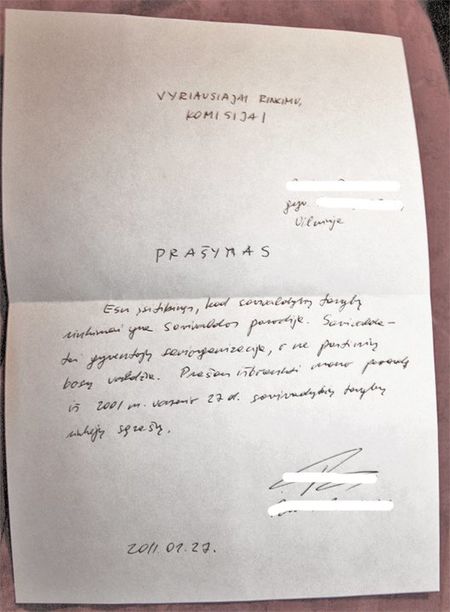 VYRIAUSIAJAI RINKIMŲ
KOMISIJAI
gyv.
Vilniuje
PRAŠYMAS
Esu įsitikinęs, kad savivaldybių tarybų
rinkimai yra savivaldos parodija. Savivalda –
tai gyventojų saviorganizacija, o ne partinių
bosų valdžia. Prašau išbraukti mano pavardę
iš 2001 m. vasario 27 d. savivaldybių tarybų
rinkėjų sąrašų.
2011.01.27.